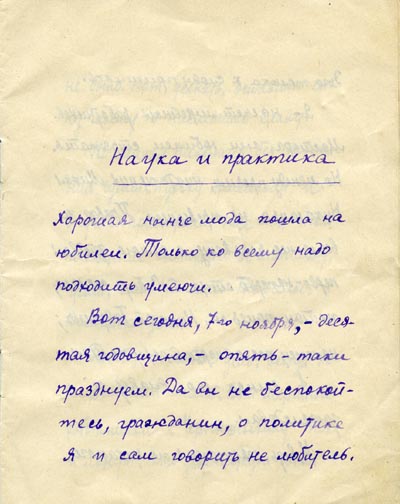 Наука и практика
Хорошая нынче мода пошла на
юбилеи. Только ко всему надо
подходить умеючи.
Вот сегодня, 7-го ноября, – деся-
тая годовщина, – опять-таки
празднуем. Да вы не беспокой-
тесь, гражданин, о политике
я и сам говорить не любитель.